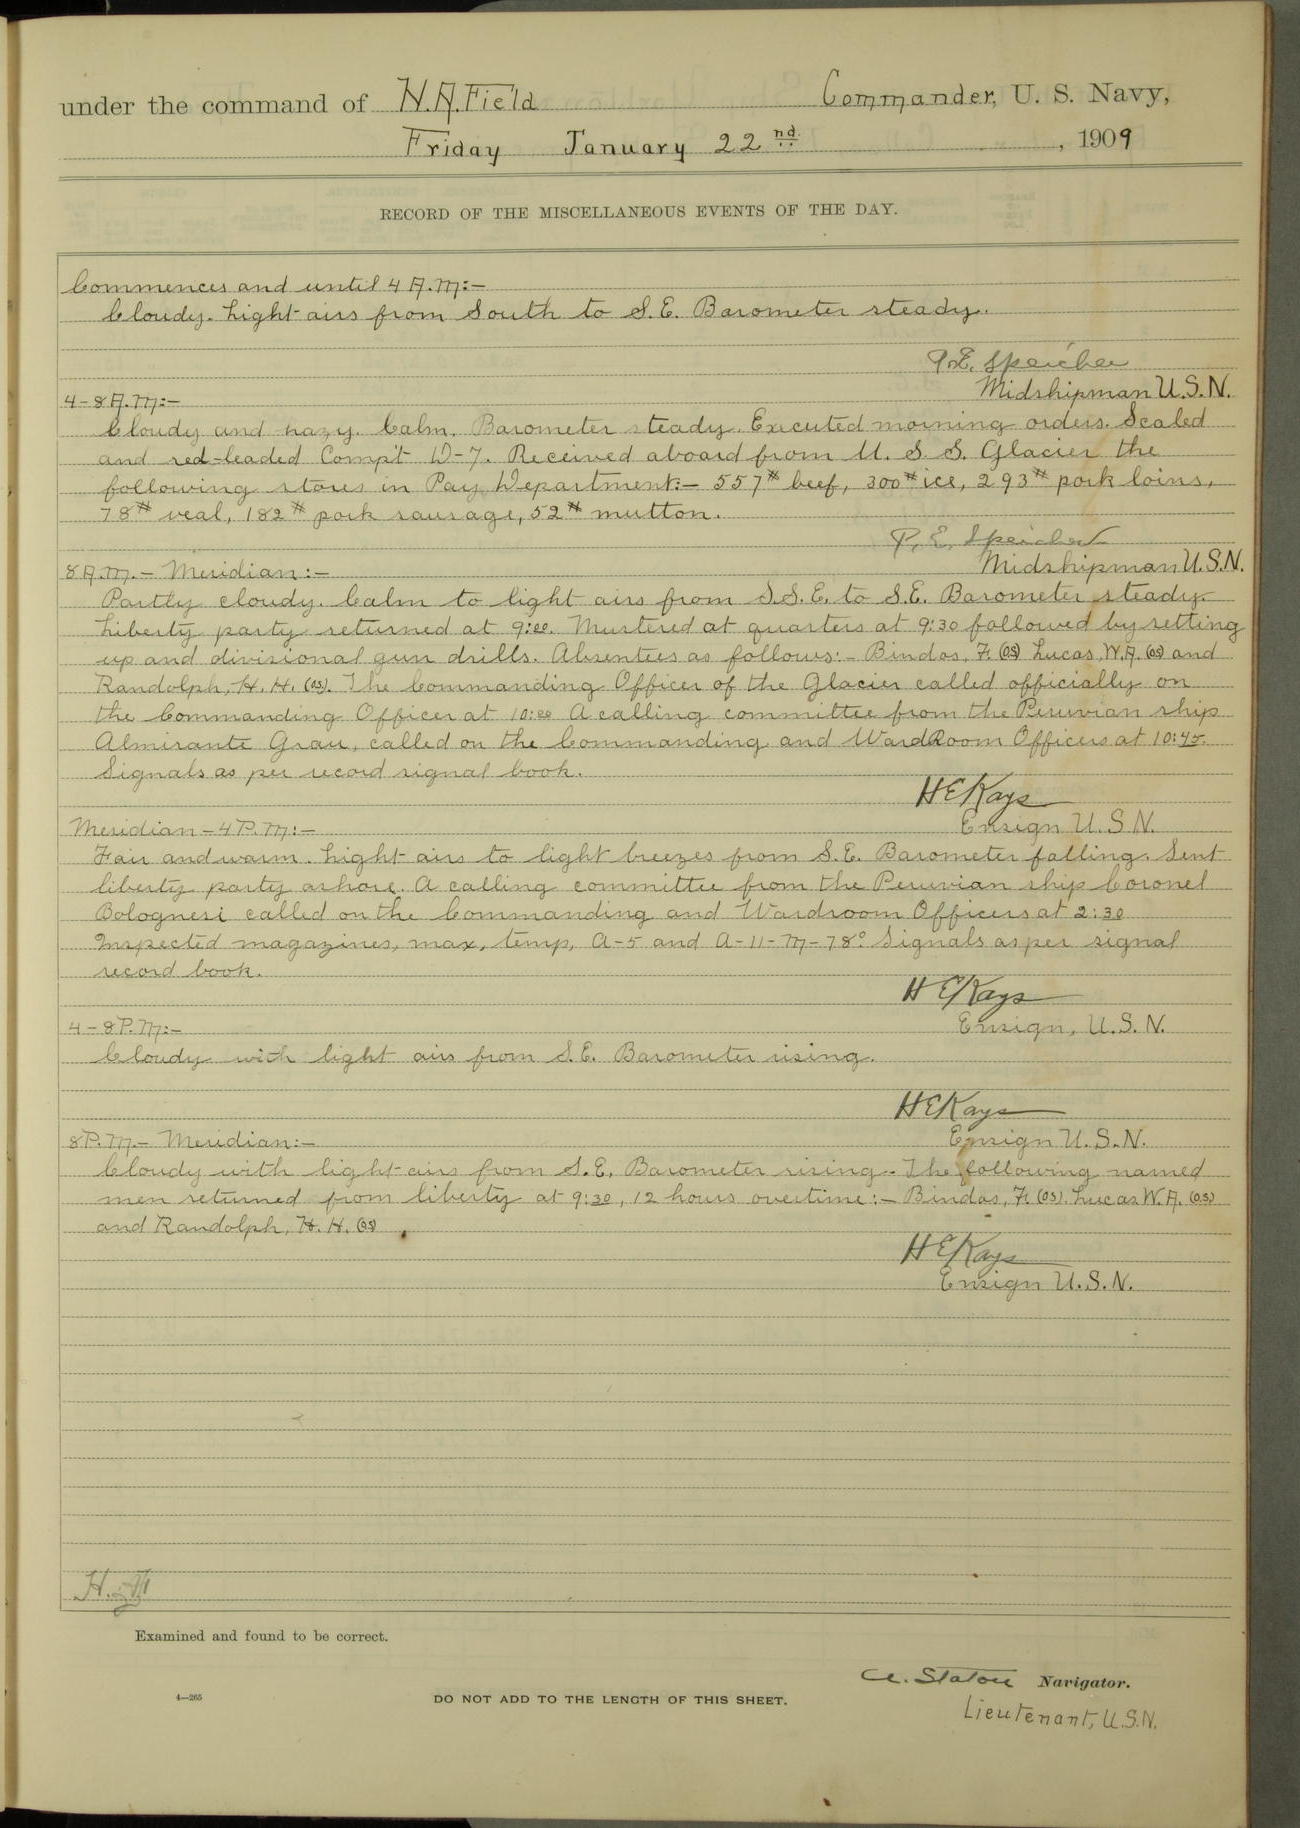 under the command of H.A. Field Commander, U. S. Navy,
Friday January 22nd , 1909
RECORD OF THE MISCELLANEOUS EVENTS OF THE DAY.
Commences and until 4 A.M:-
Cloudy. Light airs from South to S.E. Barometer steady.
P.E. Speicher
Midshipman U.S.N.
4-8 A.M:-
Cloudy and hazy. Calm. Barometer steady. Executed morning orders. Scaled
and red-leaded Comp't D-7. Received aboard from U. S. S. Glacier the
following stores in Pay Department:- 557# beef, 300# ice, 293# pork loins,
78# veal, 182# pork sausage, 52# mutton.
P. E. Speicher
Midshipman U.S.N.
8 A.M. - Meridian:-
Partly cloudy. Calm to light airs from S.S.E. to S.E. Barometer steady.
Liberty party returned at 9:00. Mustered at quarters at 9:30 followed by setting
up and divisional gun drills. Absentees as follows:- Bindos, F. (OS) Lucas, W.A. (OS) and
Randolph, H. H. (OS). The Commanding Officer of the Glacier called officially on
the Commanding Officer at 10:00 A calling committee from the Peruvian ship
Almirante Grau, called on the Commanding and WardRoom Officers at 10:45.
Signals as per record signal book.
H E Kays
Ensign U.S.N.
Meridian - 4 P.M:-
Fair and warm. Light airs to light breezes from S.E. Barometer falling. Sent
liberty party ashore. A calling committee from the Peruvian ship Coronel
Bolognesi called on the Commanding and Wardroom Officers at 2:30
Inspected magazines, max, temp, A-5 and A-11-M-78° Signals as per signal
record book.
H E Kays
Ensign, U.S.N.
4-8 P.M:-
Cloudy with light airs from S.E. Barometer rising.
H E Kays
Ensign U.S.N.
8 P.M.- Meridian:-
Cloudy with light airs from S.E. Barometer rising. The following named
men returned from liberty at 9:30, 12 hours overtime:- Bindos, F. (OS). Lucas W.A. (OS)
and Randolph, H. H. (OS)
H E Kays
Ensign U.S.N.
Examined and found to be correct.
A. Staton Navigator.
4-265
DO NOT ADD TO THE LENGTH OF THIS SHEET.
Lieutenant, U.S.N.